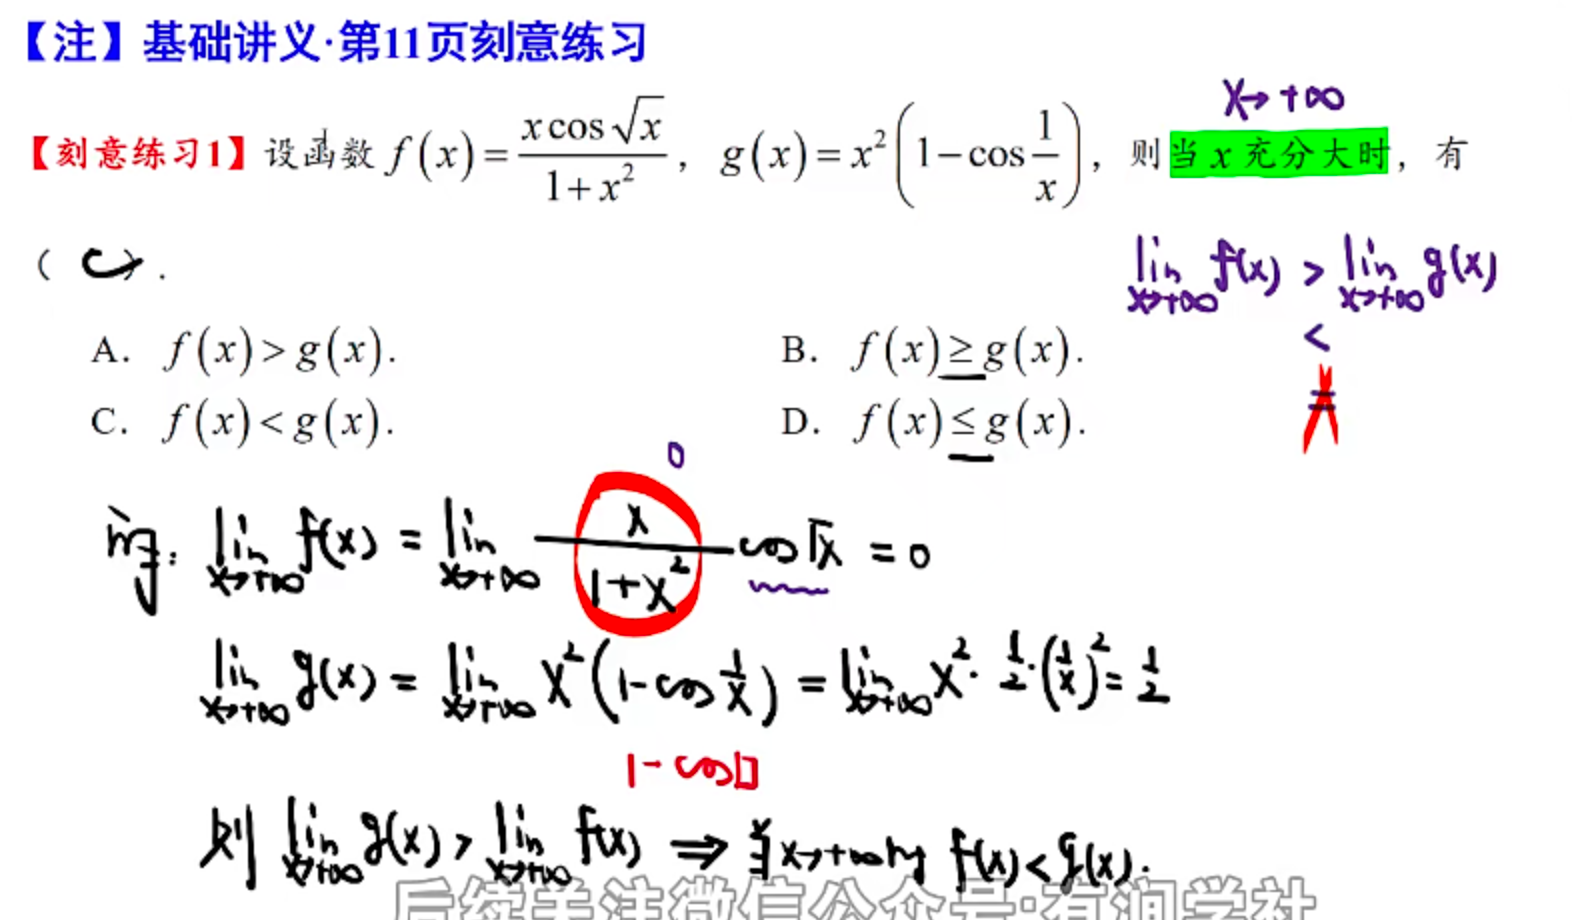 【注】基础讲义·第11页刻意练习
x→+∞
【刻意练习1】设函数 f(x)=\frac{x\cos\sqrt{x}}{1+x^2}，g(x)=x^2(1-\cos\frac{1}{x})，则当 x 充分大时，有
( C ).
\lim_{x→+∞} f(x) > \lim_{x→+∞} g(x)
<
=
A. f(x)>g(x).
B. f(x)≥g(x).
C. f(x)<g(x).
D. f(x)≤g(x).
0
\lim_{x→+∞} f(x) = \lim_{x→+∞} \frac{x}{1+x^2} \cos\sqrt{x} = 0
\lim_{x→+∞} g(x) = \lim_{x→+∞} x^2(1-\cos\frac{1}{x}) = \lim_{x→+∞} x^2·\frac{1}{2}·(\frac{1}{x})^2 = \frac{1}{2}
1-cos□
则 \lim_{x→+∞} g(x) > \lim_{x→+∞} f(x) ⇒ 当x→+∞时 f(x)<g(x).
后续关注微信公众号:有润学社